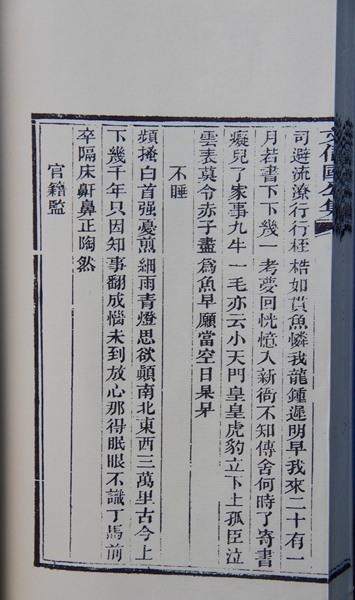 司避流潦行行桎梏如貫魚憐我龍鍾遲明早我來二十有一
月若書下下幾一考夢回恍憶入新衙不知傳舍何時了寄書
癡兒了家事九牛一毛亦云小天門皇皇虎豹立下上孤臣泣
雲表莫令赤子盡為魚早願當空日杲杲
不睡
頻掩白首强憂煎細雨青燈思欲顛南北東西三萬里古今上
下幾千年只因知事翻成惱未到放心那得眠眼不識丁馬前
卒隔床鼾鼻正陶然
官籍監